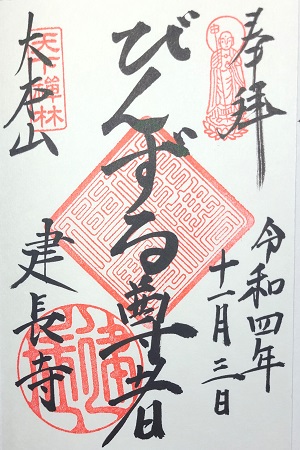 奉拝
令和四年
十一月三日
びんずる尊者
天下禅林
建長寺